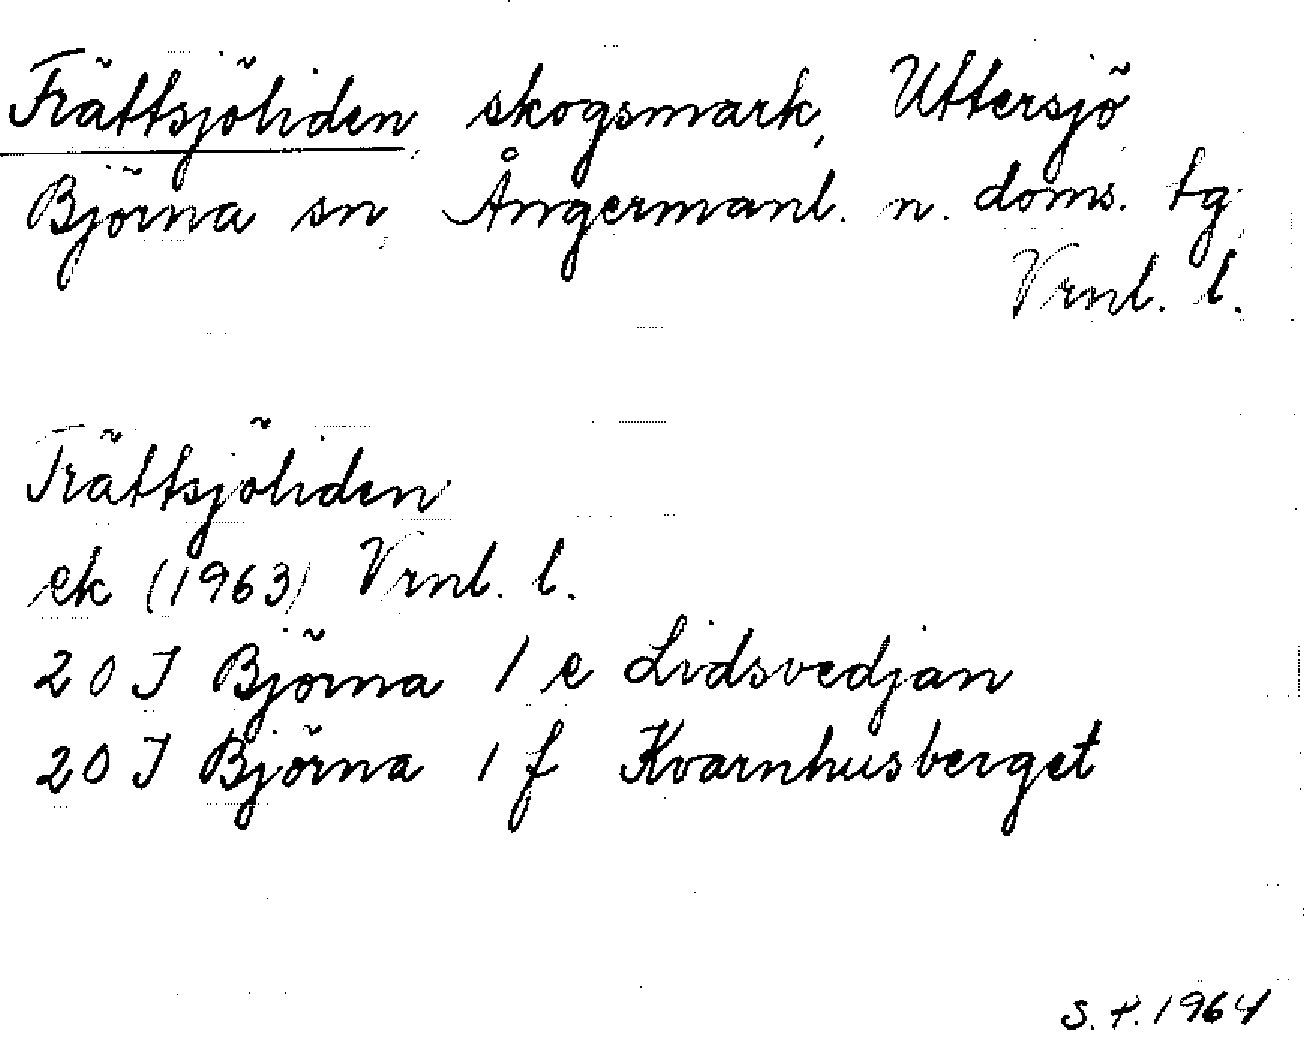 Trättsjöliden, skogsmark, Uttersjö
Björna sn, Ångermanl. n. doms. tg,
Vrnl. l.
Trättsjöliden
ek (1963) Vrnl. l.
20 I Björna 1 e Lidsvedjan
20 I Björna 1 f Kvarnhusberget
S. t. 1964